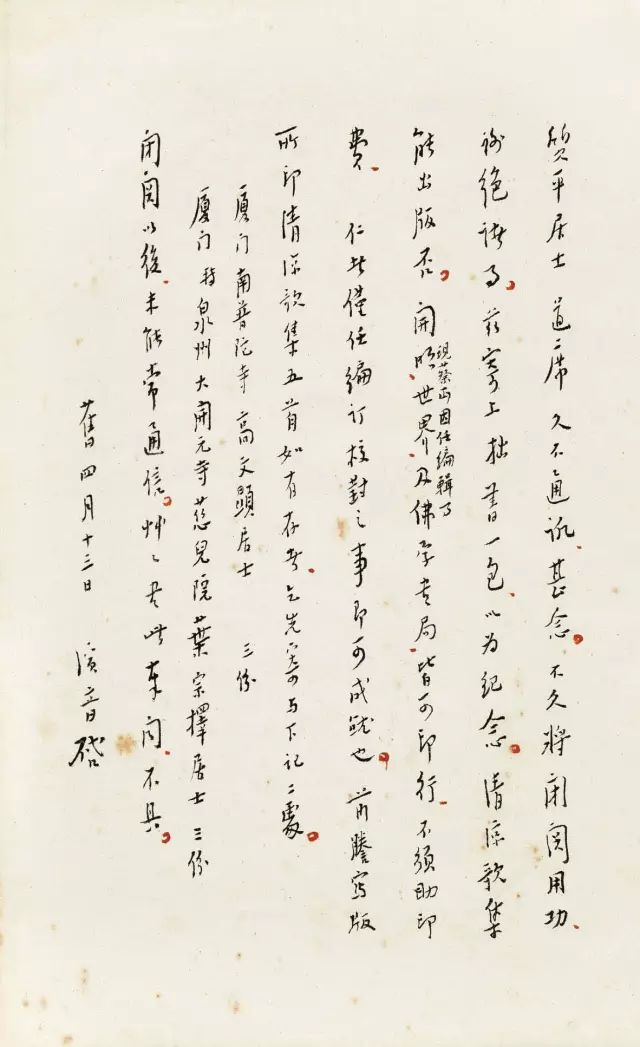 質平居士道席 久不通訊、甚念。不久將閉関用功、
謝絕諸事。茲寄上拙書一包、以为紀念。清涼歌集
能出版否。開明、世界、及佛学书局、皆可印行、不须助印
現蔡丏因任編輯事
費、 仁者僅任編訂校對之事即可成就也。前謄寫版
所印清涼歌集五首如有存者、乞先寄与下記二處。
厦门南普陀寺 高文顯居士 三份
厦门轉泉州大開元寺慈兒院葉宗擇居士三份
閉関以後、未能常通信。艸艸书此奉聞、不具。
舊四月十三日 演音啓